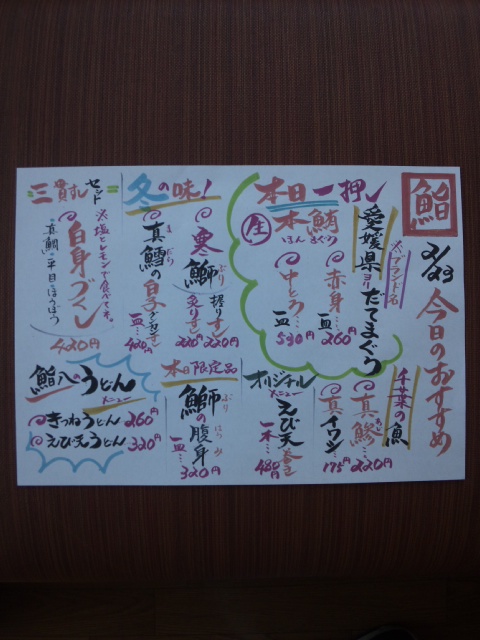 鮨
2/23
今日のおすすめ
本日一押し
生
本鮪
ほんまぐろ
愛媛県ヨリ
※ブランド名
だてまぐろ
赤身…
一皿…260円
中とろ…
一皿…530円
千葉の魚
真鯵
あじ
220円
真イワシ
175円
オリジナル
メニュー
えび天巻き
一本…480円
冬の味!
寒鰤
ぶり
握りすし
220円
炙りすし
220円
真鱈の白子
まだら
グンカン
一皿…420円
本日限定品
鰤の腹身
ぶり
はらみ
一皿…320円
三貫すしセット
※塩とレモンで食べてネ。
白身づくし
・真鯛・平目・ほうぼう
420円
鮨八のうどん
メニュー
きつねうどん 260円
えび天うどん 320円